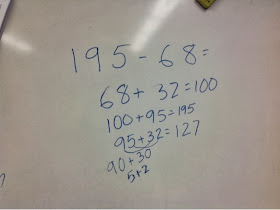 195 - 68 =
68 + 32 = 100
100 + 95 = 195
95 + 32 = 127
90 + 30
5 + 2